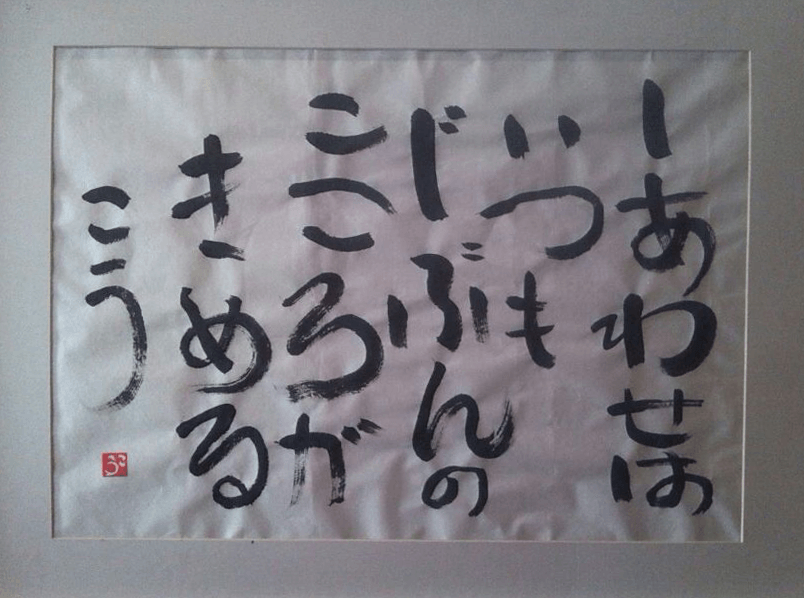 しあわせは
いつも
じぶんの
こころが
きめる
こう